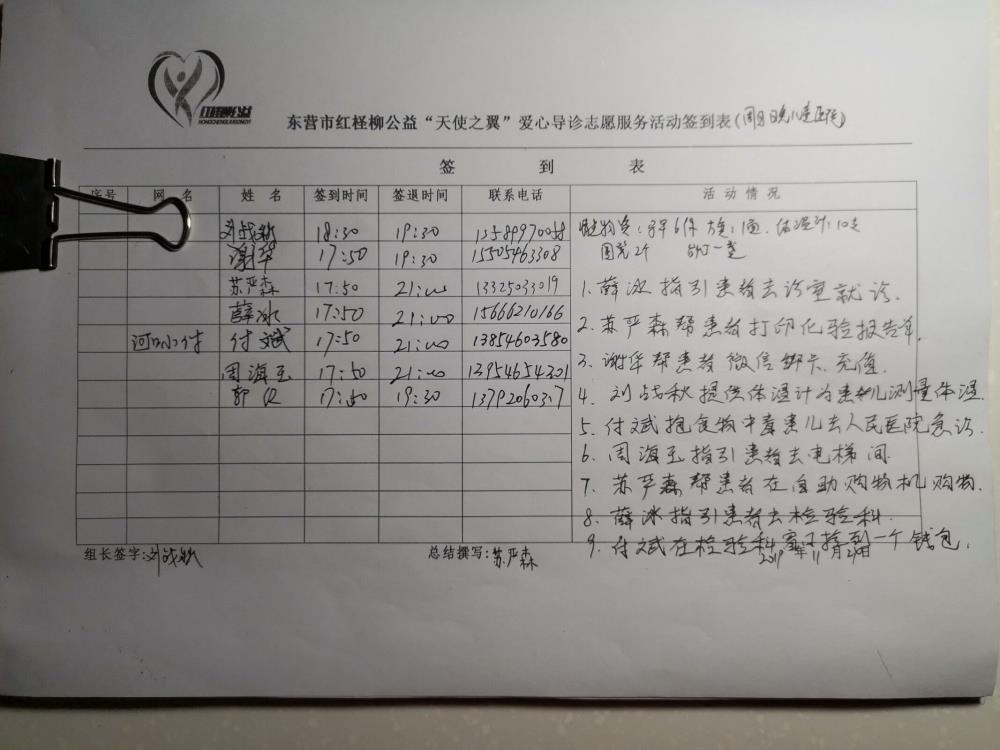 红柽柳公益
HONGCHENGLIUGONGYI
东营市红柽柳公益“天使之翼”爱心导诊志愿服务活动签到表(周日晚儿童医院)
签 到 表
序号 网 名 姓 名 签到时间 签退时间 联系电话 活动情况
刘战秋 18:30 19:30 13589970058
谢华 17:50 19:30 15505463308
苏严森 17:50 21:00 13325033019
薛冰 17:50 21:00 15666210166
河口小付 付斌 17:50 21:00 13854603580
周海玉 17:50 21:00 13954654201
郭 17:50 19:30
物资:马甲6件 1 体温计:10支
2个 一
1.薛冰指引患者去诊室就诊.
2.苏严森帮患者打印化验报告单.
3.谢华帮患者微信绑卡.充值.
4.刘战秋提供体温计为患儿测量体温.
5.付斌抱食物中毒患儿去人民医院急诊.
6.周海玉指引患者去电梯间.
7.苏严森帮患者在自助购物机购物.
8.薛冰指引患者去检验科.
9.付斌在检验科窗口捡到一个钱包.
组长签字:刘战秋 总结撰写:苏严森 年11月 日